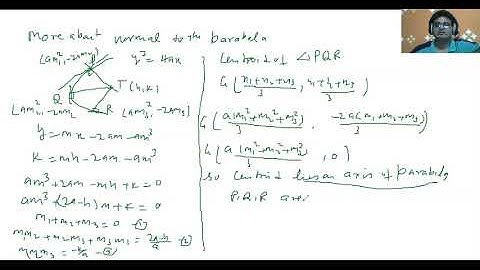 More about normal to the parabola
(am₁², -2am₁)
y² = 4ax
T (h,k)
Q
R
(am₂², -2am₂
(am₃², -2am₃)
y = mx - 2am - am³
k = mh - 2am - am³
am³ + 2am - mh + k = 0
am³ + (2a-h)m + k = 0
m₁ + m₂ + m₃ = 0 - ①
m₁m₂ + m₂m₃ + m₃m₁ = 2a-h/a - ②
m₁m₂m₃ = -k/a - ③
Centroid of △PQR
G ( x₁+x₂+x₃/3 , y₁+y₂+y₃/3 )
G ( a(m₁²+m₂²+m₃²)/3 , -2a(m₁+m₂+m₃)/3 )
G ( a(m₁²+m₂²+m₃²)/3 , 0 )
so centroid lies on axis of parabola
P, Q, R are